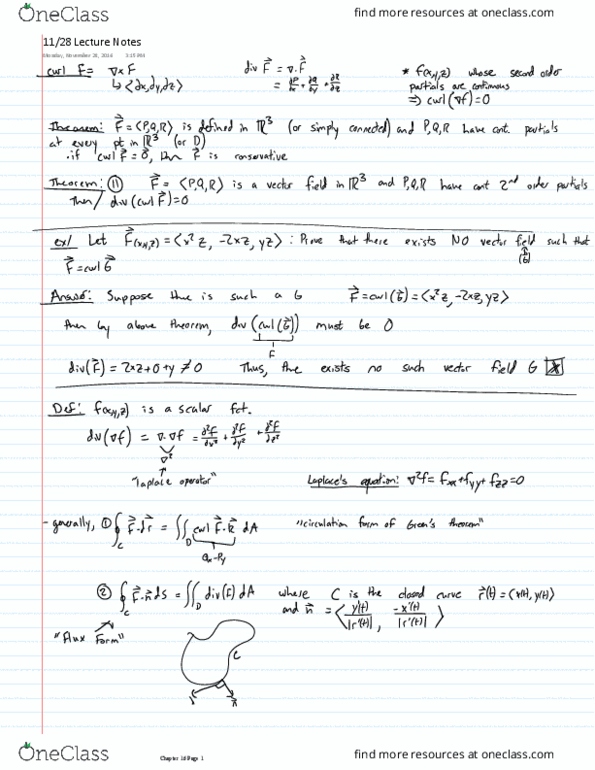 OneClass
find more resources at oneclass.com
11/28 Lecture Notes
Monday, November 28, 2016 3:15 PM
curl F = ∇×F
↳ <∂x,∂y,∂z>
div F⃗ = ∇·F⃗
= ∂P/∂x + ∂Q/∂y + ∂R/∂z
* f(x,y,z) whose second order
partials are continuous
⇒ curl(∇f)=0
Theorem: F⃗ = <P,Q,R> is defined in ℝ³ (or simply connected) and P,Q,R have cont. partials
at every pt in ℝ³ (or D)
. if curl F⃗ = 0⃗, then F⃗ is conservative
Theorem: ⑪ F⃗ = <P,Q,R> is a vector field in ℝ³ and P,Q,R have cont 2nd order partials
Then/ div(curl F)=0
ex/ Let F⃗(x,y,z) = <x²z, -2xz, yz> : Prove that there exists NO vector field such that
(G⃗)
F⃗ = curl G⃗
Answer: Suppose there is such a G F⃗ = curl(G⃗) = <x²z, -2xz, yz>
then by above theorem, div(curl(G⃗)) must be 0
F
div(F⃗) = 2xz+0+y ≠ 0 Thus, there exists no such vector field G
Def: f(x,y,z) is a scalar fct.
div(∇f) = ∇·∇f = ∂²f/∂x² + ∂²f/∂y² + ∂²f/∂z²
∇²
"laplace operator"
Laplace's equation: ∇²f = fxx+fyy+fzz=0
- generally, ① ∮C F⃗·dr⃗ = ∬D curl F⃗·k⃗ dA "circulation form of Green's theorem"
Qx-Py
② ∮C F⃗·n⃗ ds = ∬D div(F) dA where C is the closed curve r⃗(t) = <x(t), y(t)>
and n⃗ = <y'(t)/|r'(t)|, -x'(t)/|r'(t)|>
"Flux Form"
C
n⃗
Chapter 16 Page 1
OneClass
find more resources at oneclass.com